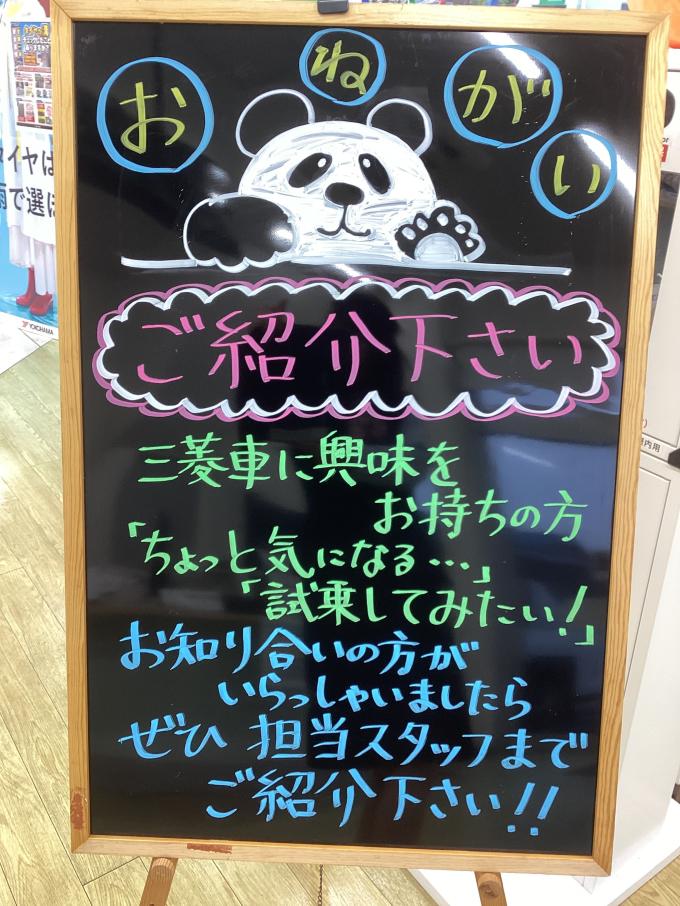 おねがい
ご紹介下さい
三菱車に興味を
お持ちの方
「ちょっと気になる…」
「試乗してみたい!」
お知り合いの方が
いらっしゃいましたら
ぜひ 担当スタッフまで
ご紹介下さい!!
イヤは
で選ぼ
YOKOHAMA
内用